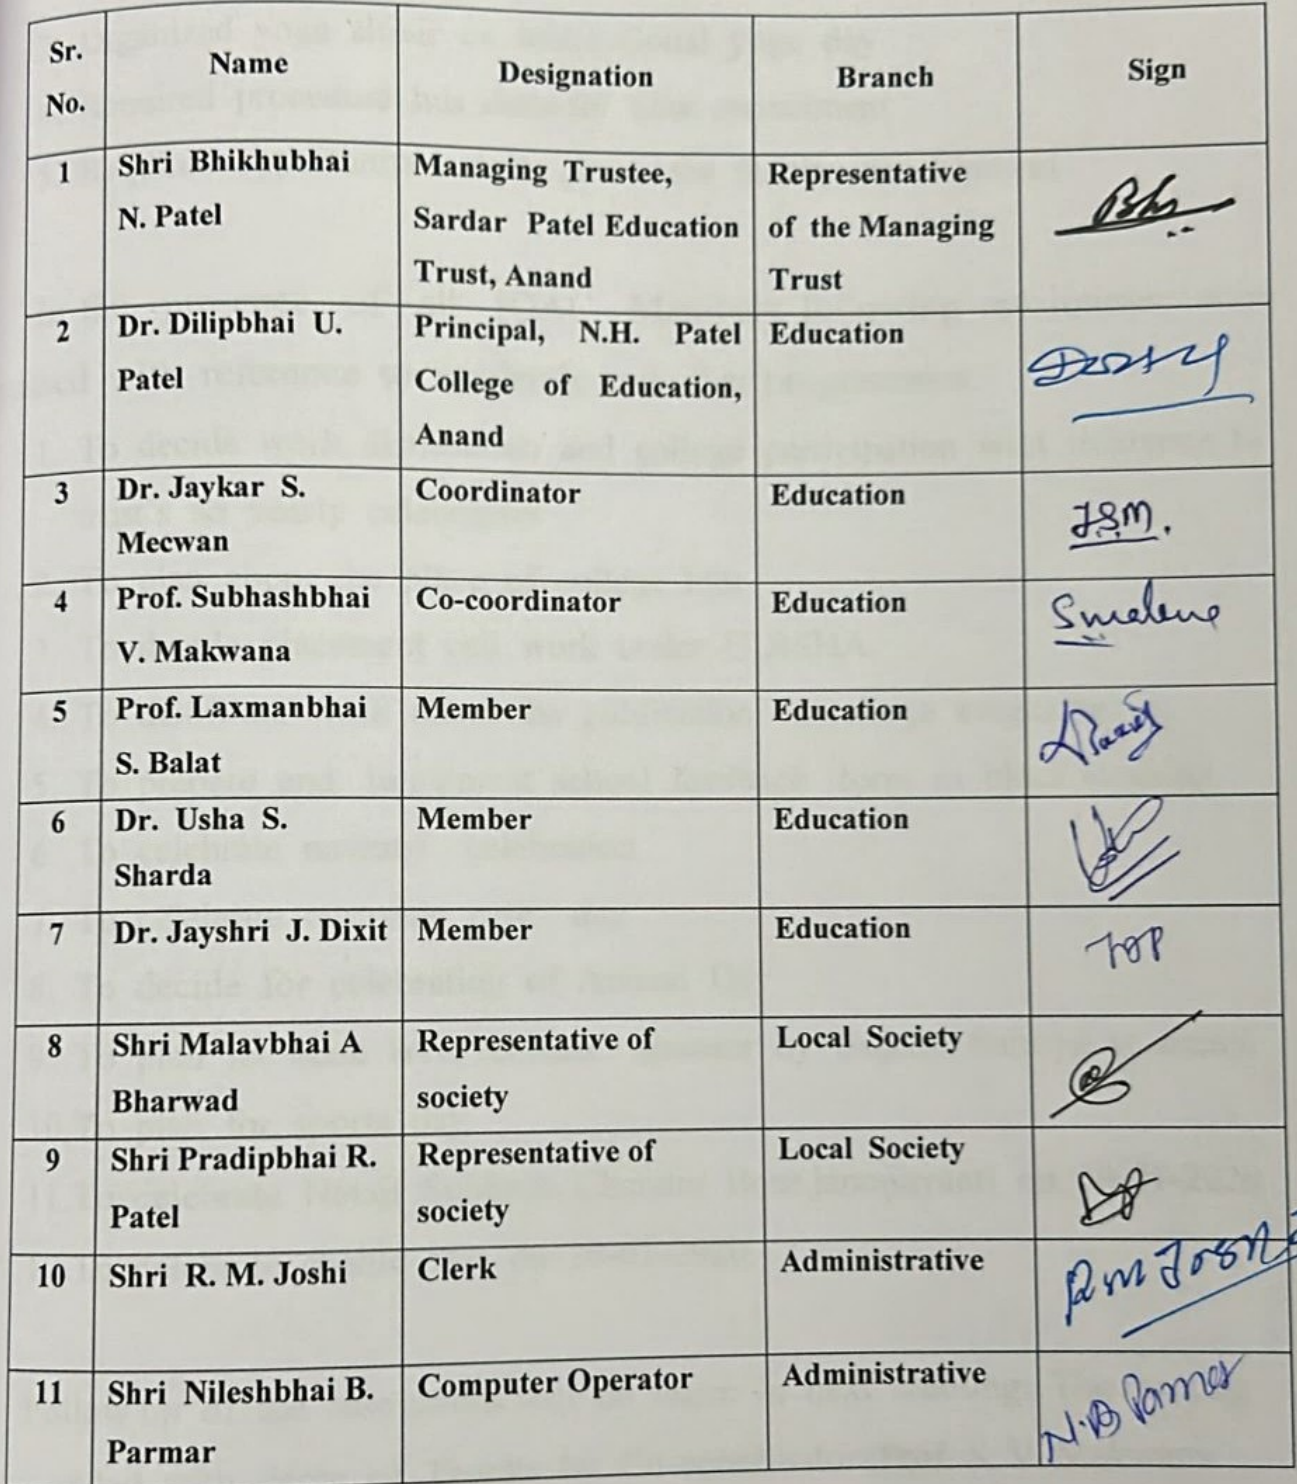 Sr. No.
Name
Designation
Branch
Sign
1
Shri Bhikhubhai
N. Patel
Managing Trustee,
Sardar Patel Education
Trust, Anand
Representative
of the Managing
Trust
2
Dr. Dilipbhai U.
Patel
Principal, N.H. Patel
College of Education,
Anand
Education
3
Dr. Jaykar S.
Mecwan
Coordinator
Education
J.S.M.
4
Prof. Subhashbhai
V. Makwana
Co-coordinator
Education
5
Prof. Laxmanbhai
S. Balat
Member
Education
6
Dr. Usha S.
Sharda
Member
Education
7
Dr. Jayshri J. Dixit
Member
Education
8
Shri Malavbhai A
Bharwad
Representative of
society
Local Society
9
Shri Pradipbhai R.
Patel
Representative of
society
Local Society
10
Shri R. M. Joshi
Clerk
Administrative
11
Shri Nileshbhai B.
Parmar
Computer Operator
Administrative
N.B Parmar